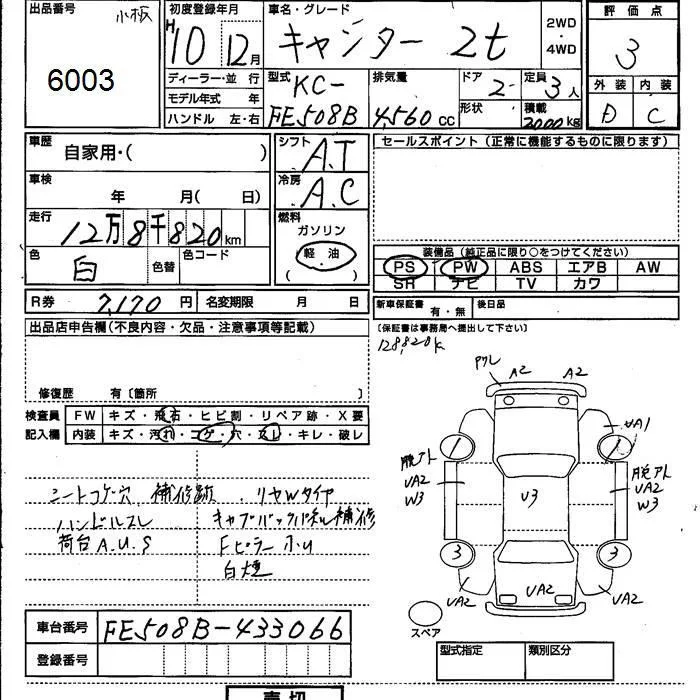 出品番号
小板
6003
初度登録年月
H 10 12月
車名・グレード
キャンター 2t
2WD・4WD
評価点
3
外装 内装
D C
ディーラー・並 行
モデル年式 年
ハンドル 左・右
型式
KC-
FE508B
排気量
4,560 cc
ドア
2
定員
3人
形状
積載
2000kg
車歴
自家用・( )
シフト
A.T
車検
年 月( 日)
冷房
A.C
走行
12万8千820km
燃料
ガソリン
軽油
( )
色
白
色替
色コード
セールスポイント(正常に機能するものに限ります)
装備品(純正品に限り○をつけてください)
PS PW ABS エアB AW
SR ナビ TV カワ
R券 7,170 円 名変期限 月 日
新車保証書 有・無 後日品
(保証書は事務局へ提出して下さい)
128,820K
出品店申告欄(不良内容・欠品・注意事項等記載)
修復歴 有〔箇所 〕
検査員
記入欄
FW キズ・飛石・ヒビ割・リペア跡・X要
内装 キズ・汚れ・コゲ・穴・スレ・キレ・破レ
シートコゲ穴 補修跡 リヤWタイヤ
ハンドルスレ キャブバックパネル補修
荷台A.U.S Fピラー小U
白煙
A2 A2
UA1
1
1
脱アト
UA2
W3
U3
脱アト
UA2
W3
3
3
UA2
UA2
UA2
スペア
車台番号 FE508B-433066
登録番号
型式指定 類別区分
売切